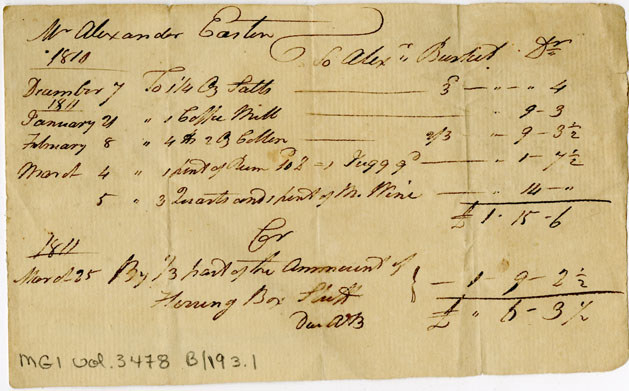 Mr Alexander Easton
1810 To Alexr Burket Dr
December 7 To 1/4 Salts 3 — " — " — 4
1811
January 21 " 1 Coffee Mill — " 9 - 3
February 8 " 4 lb 2 Cotton 2/3 — " 9 - 3 1/2
March 4 " 1 pint of Rum 10d = 1 Jugg 9d — " 1 - 7 1/2
5 " 3 Quarts and 1 pint of Wine — " 14 - "
£ 1 - 15 - 6
Cr
1811
March 25 By 1/3 part of the Ammount of
Herring Box Stuff } — 1 - 9 - 2 1/2
Due AB £ " 6 - 3 1/2
MG1 vol. 3478 B/193.1